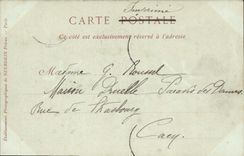 Imprimé
CARTE POSTALE
Ce côté est exclusivement réservé à l'adresse
Madame G. Roussel
Maison Druelle Paradis des Dames
Rue de Strasbourg
Caen
Établissements Photographiques de NEURDEIN Frères. — Paris.